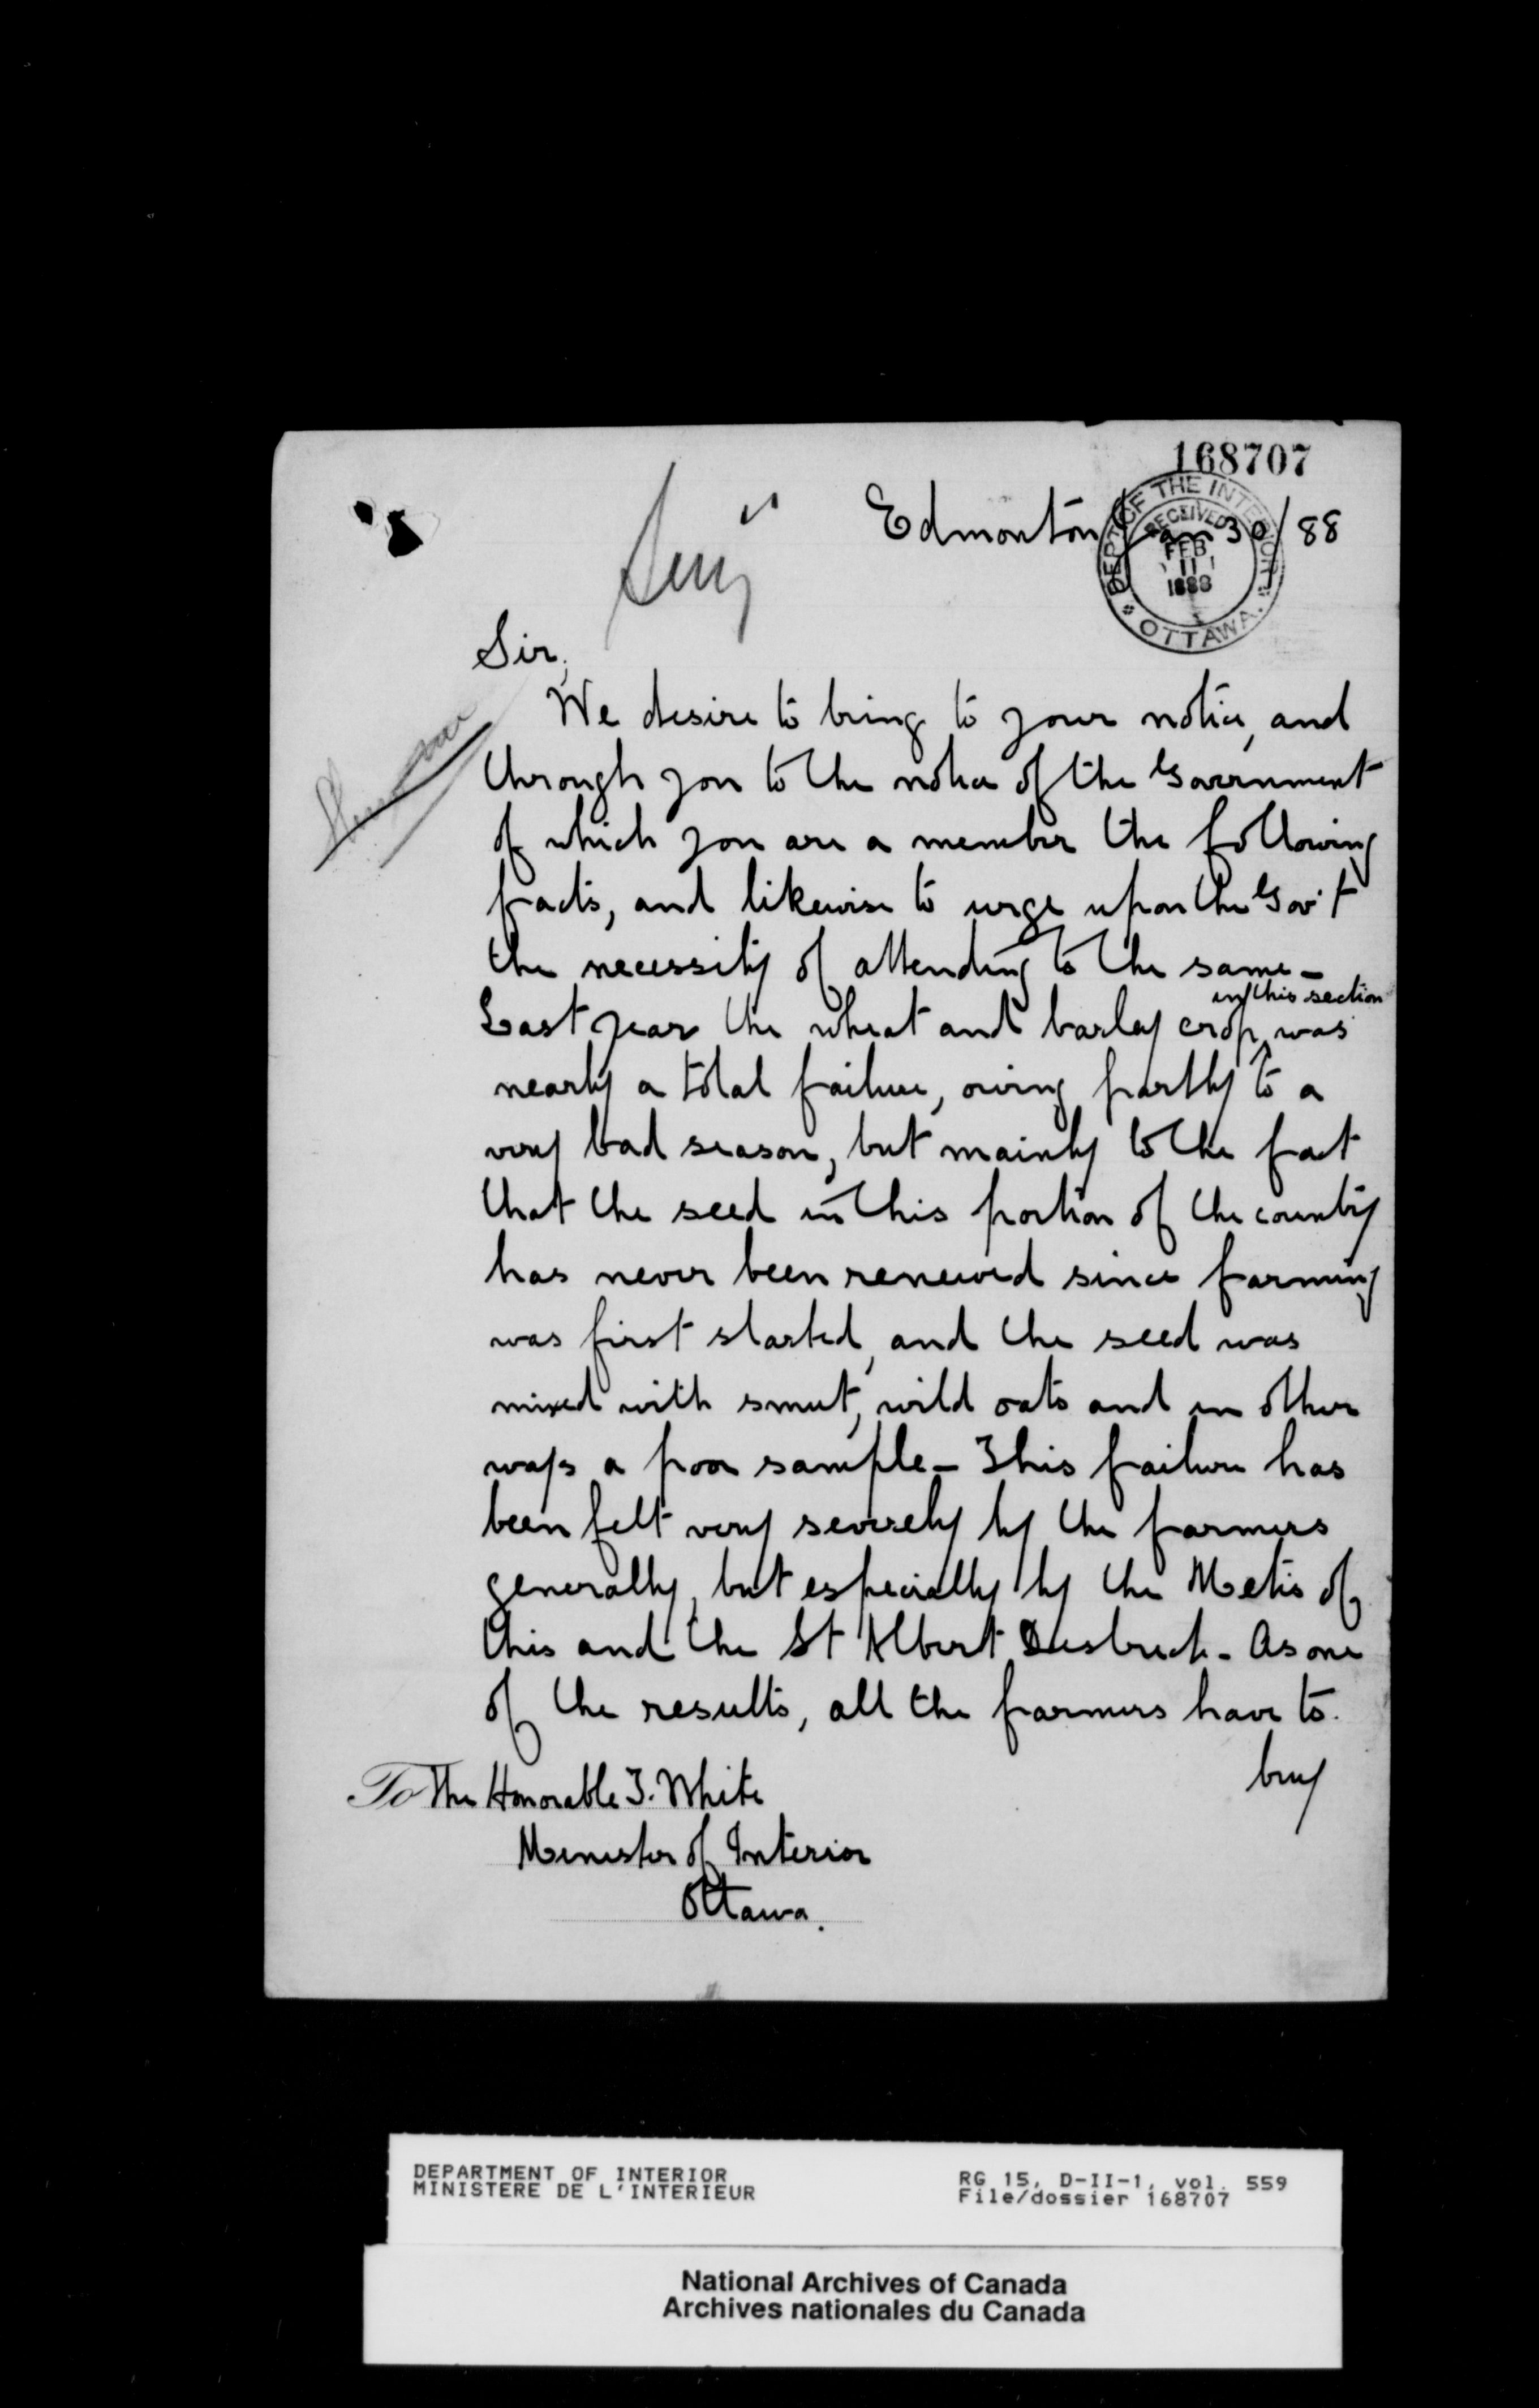 168707
Edmonton Jan 30/88
DEPT OF THE INTERIOR
RECEIVED
FEB
11
1888
OTTAWA.
Sir,
We desire to bring to your notice, and
through you to the notice of the Government
of which you are a member the following
facts, and likewise to urge upon the Gov't
the necessity of attending to the same –
in this section
Last year the wheat and barley crop ^ was
nearly a total failure, owing partly to a
very bad season, but mainly to the fact
that the seed in this portion of the country
has never been renewed since farming
was first started, and the seed was
mixed with smut, wild oats and in other
ways a poor sample – This failure has
been felt very severely by the farmers
generally, but especially by the Metis of
this and the St Albert District – As one
of the results, all the farmers have to
buy
To The Honorable T. White
Minister of Interior
Ottawa.
DEPARTMENT OF INTERIOR
MINISTERE DE L'INTERIEUR
RG 15, D-II-1, vol. 559
File/dossier 168707
National Archives of Canada
Archives nationales du Canada